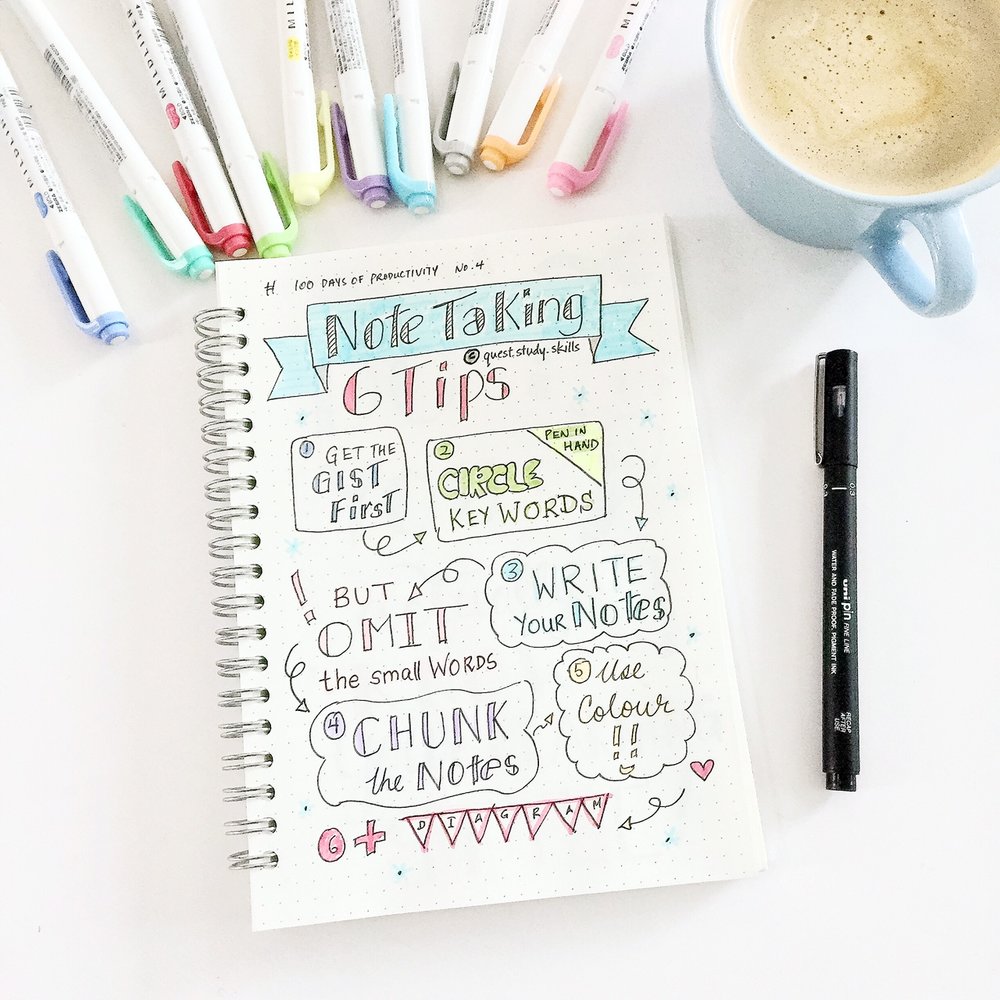 MILDLINER
MILDLINER
MIL
MIL
# 100 DAYS OF PRODUCTIVITY NO.4
Note Taking
© quest.study.skills
6 Tips
① GET THE
GIST
First
② PEN IN
HAND
CIRCLE
KEY WORDS
③ WRITE
YOUR NOTES
! BUT
OMIT
the small WORDS
④ CHUNK
the NOTES
⑤ Use
Colour
!!
6 + DIAGRAM
0.3
0.3
uni pin FINE LINE
WATER AND FADE PROOF, PIGMENT INK
RECAP
AFTER
USE